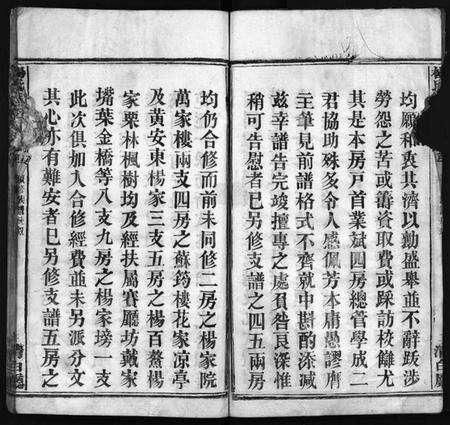 均願和衷共濟以勷盛舉並不辭跋涉
勞怨之苦或籌資取費或踩訪校讎尤
其是本房戶首業斌四房總管學成二
君協助殊多令人感佩芳本庸愚謬膺
主筆見前譜格式不齊就中斟酌添減
茲幸譜告完竣擅專之處負咎良深惟
稍可告慰者巳另修支譜之四五兩房
均仍合修而前未同修二房之楊家院
萬家樓兩支四房之蘇筠樓花家凉亭
及黃安東楊家三支五房之楊百鰲楊
家栗林楓樹均及經扶屬賽廳坊戴家
嘴葉金橋等八支九房之楊家塝一支
此次俱加入合修經費並未另派分文
其心亦有難安者巳另修支譜五房之
清白廳
清白廳